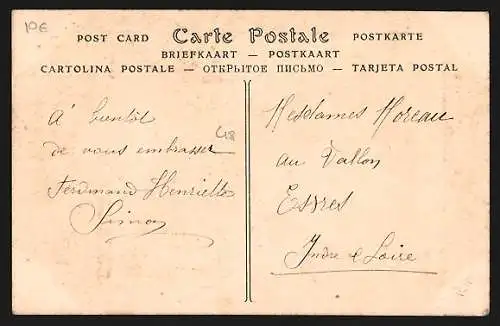 10€
Carte Postale
POST CARD
POSTKARTE
BRIEFKAART — POSTKAART
CARTOLINA POSTALE — ОТКРЫТОЕ ПИСЬМО — TARJETA POSTAL
A' bientôt
de vous embrasser
Ferdinand Henriette
Simon
Mesdames Moreau
au Vallon
Esvres
Indre & Loire